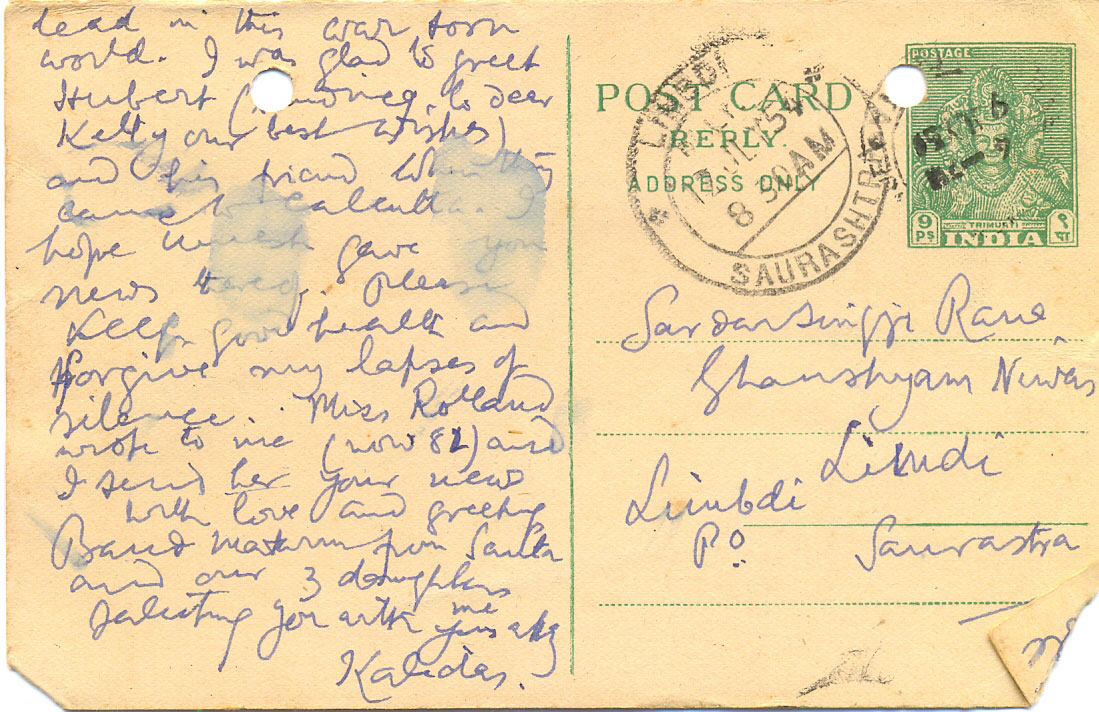 lead in this war torn
world. I was glad to greet
Hubert ( to dear
Kelly our best wishes)
and his friend when they
came to Calcutta. I
hope gave you
news . please
keep good health and
forgive my lapses of
silence. Miss Rolland
wrote to me (now 82) and
I send her your news
with love and greeting
Bande mataram from Santa
and our 3 daughters
saluting you with me
Yours
Kalidas.
POST CARD
REPLY.
ADDRESS ONLY
LIMBDI
8 30AM
SAURASHTRA
POSTAGE
9 PS
TRIMURTI
INDIA
९ पा
Sardarsingji Rana
Ghanshyam Niwas
Limdi
Limbdi
P.O
Saurastra